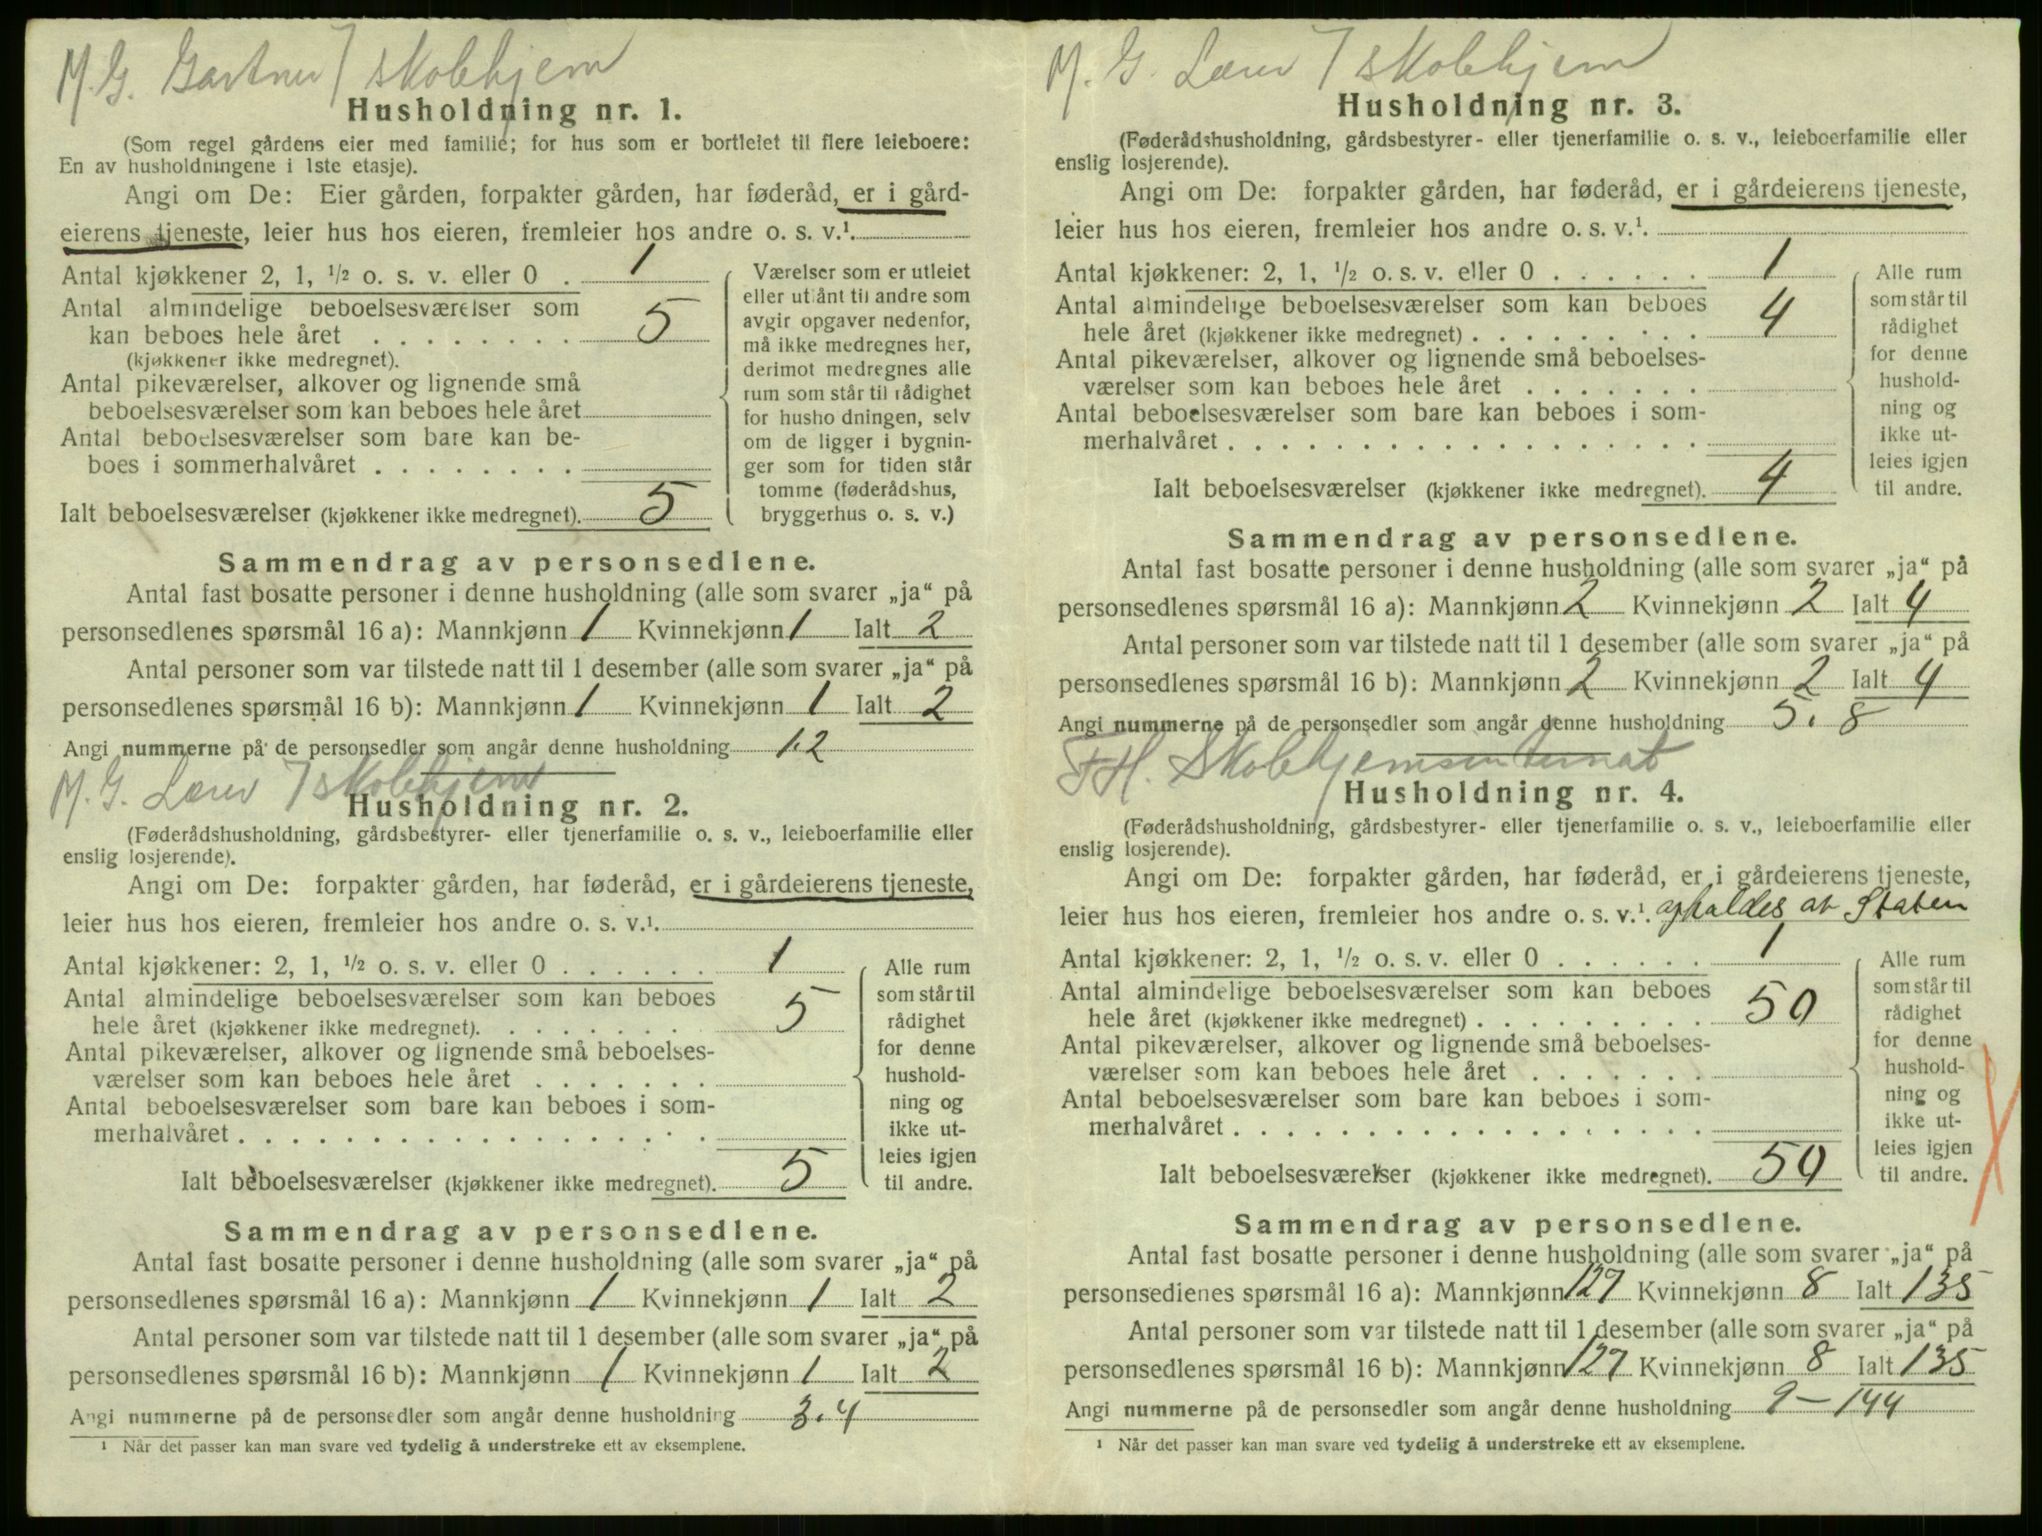 M. G. Gartner / skolehjem
Husholdning nr. 1.
(Som regel gårdens eier med familie; for hus som er bortleiet til flere leieboere:
En av husholdningene i 1ste etasje).
Angi om De: Eier gården, forpakter gården, har føderåd, er i gård-
eierens tjeneste, leier hus hos eieren, fremleier hos andre o. s. v.¹.
Antal kjøkkener 2, 1, ½ o. s. v. eller 0 . 1
Antal almindelige beboelsesværelser som
kan beboes hele året . . . . . . . . 5
(kjøkkener ikke medregnet).
Antal pikeværelser, alkover og lignende små
beboelsesværelser som kan beboes hele året
Antal beboelsesværelser som bare kan be-
boes i sommerhalvåret . . . . . . . .
Ialt beboelsesværelser (kjøkkener ikke medregnet). 5
Værelser som er utleiet
eller utlånt til andre som
avgir opgaver nedenfor,
må ikke medregnes her,
derimot medregnes alle
rum som står til rådighet
for husho dningen, selv
om de ligger i bygnin-
ger som for tiden står
tomme (føderådshus,
bryggerhus o. s. v.)
Sammendrag av personsedlene.
Antal fast bosatte personer i denne husholdning (alle som svarer „ja“ på
personsedlenes spørsmål 16 a): Mannkjønn 1 Kvinnekjønn 1 Ialt 2
Antal personer som var tilstede natt til 1 desember (alle som svarer „ja“ på
personsedlenes spørsmål 16 b): Mannkjønn 1 Kvinnekjønn 1 Ialt 2
Angi nummerne på de personsedler som angår denne husholdning 1.2
M. G. Lærer / skolehjem
Husholdning nr. 2.
(Føderådshusholdning, gårdsbestyrer- eller tjenerfamilie o. s. v., leieboerfamilie eller
enslig losjerende).
Angi om De: forpakter gården, har føderåd, er i gårdeierens tjeneste,
leier hus hos eieren, fremleier hos andre o. s. v.¹.
Antal kjøkkener: 2, 1, ½ o. s. v. eller 0 . . . . . . 1
Antal almindelige beboelsesværelser som kan beboes
hele året (kjøkkener ikke medregnet). . . . . . . . 5
Antal pikeværelser, alkover og lignende små beboelses-
værelser som kan beboes hele året . . . . . . .
Antal beboelsesværelser som bare kan beboes i som-
merhalvåret . . . . . . . . . . . . . . . . . .
Ialt beboelsesværelser (kjøkkener ikke medregnet). 5
Alle rum
som står til
rådighet
for denne
hushold-
ning og
ikke ut-
leies igjen
til andre.
Sammendrag av personsedlene.
Antal fast bosatte personer i denne husholdning (alle som svarer „ja“ på
personsedlenes spørsmål 16 a): Mannkjønn 1 Kvinnekjønn 1 Ialt 2
Antal personer som var tilstede natt til 1 desember (alle som svarer „ja“ på
personsedlenes spørsmål 16 b): Mannkjønn 1 Kvinnekjønn 1 Ialt 2
Angi nummerne på de personsedler som angår denne husholdning 3.4
¹ Når det passer kan man svare ved tydelig å understreke ett av eksemplene.
M. G. Lærer / skolehjem
Husholdning nr. 3.
(Føderådshusholdning, gårdsbestyrer- eller tjenerfamilie o. s. v., leieboerfamilie eller
enslig losjerende).
Angi om De: forpakter gården, har føderåd, er i gårdeierens tjeneste,
leier hus hos eieren, fremleier hos andre o. s. v.¹.
Antal kjøkkener: 2, 1, ½ o. s. v. eller 0 . . . . . . 1
Antal almindelige beboelsesværelser som kan beboes
hele året (kjøkkener ikke medregnet) . . . . . . . . 4
Antal pikeværelser, alkover og lignende små beboelses-
værelser som kan beboes hele året . . . . . . .
Antal beboelsesværelser som bare kan beboes i som-
merhalvåret . . . . . . . . . . . . . . . . . .
Ialt beboelsesværelser (kjøkkener ikke medregnet). 4
Alle rum
som står til
rådighet
for denne
hushold-
ning og
ikke ut-
leies igjen
til andre.
Sammendrag av personsedlene.
Antal fast bosatte personer i denne husholdning (alle som svarer „ja“ på
personsedlenes spørsmål 16 a): Mannkjønn 2 Kvinnekjønn 2 Ialt 4
Antal personer som var tilstede natt til 1 desember (alle som svarer „ja“ på
personsedlenes spørsmål 16 b): Mannkjønn 2 Kvinnekjønn 2 Ialt 4
Angi nummerne på de personsedler som angår denne husholdning 5.8
F H. Skolehjemsinternat
Husholdning nr. 4.
(Føderådshusholdning, gårdsbestyrer- eller tjenerfamilie o. s. v., leieboerfamilie eller
enslig losjerende).
Angi om De: forpakter gården, har føderåd, er i gårdeierens tjeneste,
leier hus hos eieren, fremleier hos andre o. s. v.¹. opholdes av Staten
Antal kjøkkener: 2, 1, ½ o. s. v. eller 0 . . . . . . 1
Antal almindelige beboelsesværelser som kan beboes
hele året (kjøkkener ikke medregnet) . . . . . . . . 50
Antal pikeværelser, alkover og lignende små beboelses-
værelser som kan beboes hele året . . . . . . .
Antal beboelsesværelser som bare kan beboes i som-
merhalvåret . . . . . . . . . . . . . . . . . .
Ialt beboelsesværelser (kjøkkener ikke medregnet). 50
Alle rum
som står til
rådighet
for denne
hushold-
ning og
ikke ut-
leies igjen
til andre.
Sammendrag av personsedlene.
Antal fast bosatte personer i denne husholdning (alle som svarer „ja“ på
personsedlenes spørsmål 16 a): Mannkjønn 127 Kvinnekjønn 8 Ialt 135
Antal personer som var tilstede natt til 1 desember (alle som svarer „ja“ på
personsedlenes spørsmål 16 b): Mannkjønn 127 Kvinnekjønn 8 Ialt 135
Angi nummerne på de personsedler som angår denne husholdning 9 – 144
¹ Når det passer kan man svare ved tydelig å understreke ett av eksemplene.